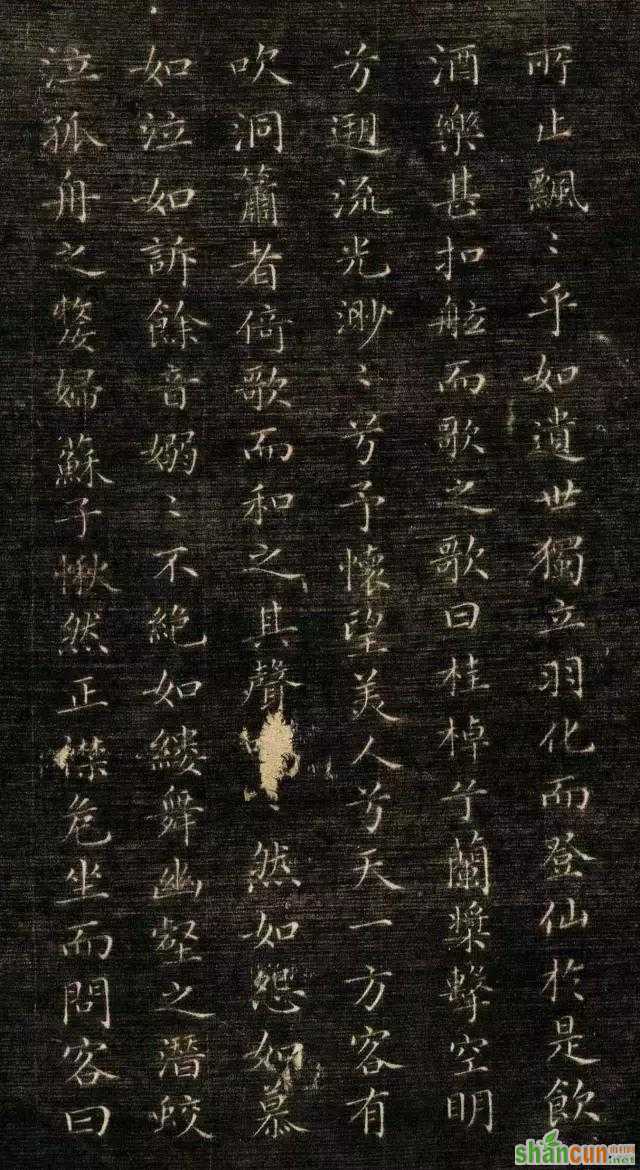 所止飄〻乎如遺世獨立羽化而登仙於是飲
酒樂甚扣舷而歌之歌曰桂棹兮蘭槳擊空明
兮遡流光渺〻兮予懷望美人兮天一方客有
吹洞簫者倚歌而和之其聲〻然如怨如慕
如泣如訴餘音嫋〻不絕如縷舞幽壑之潛蛟
泣孤舟之嫠婦蘇子愀然正襟危坐而問客曰
shancun
.net